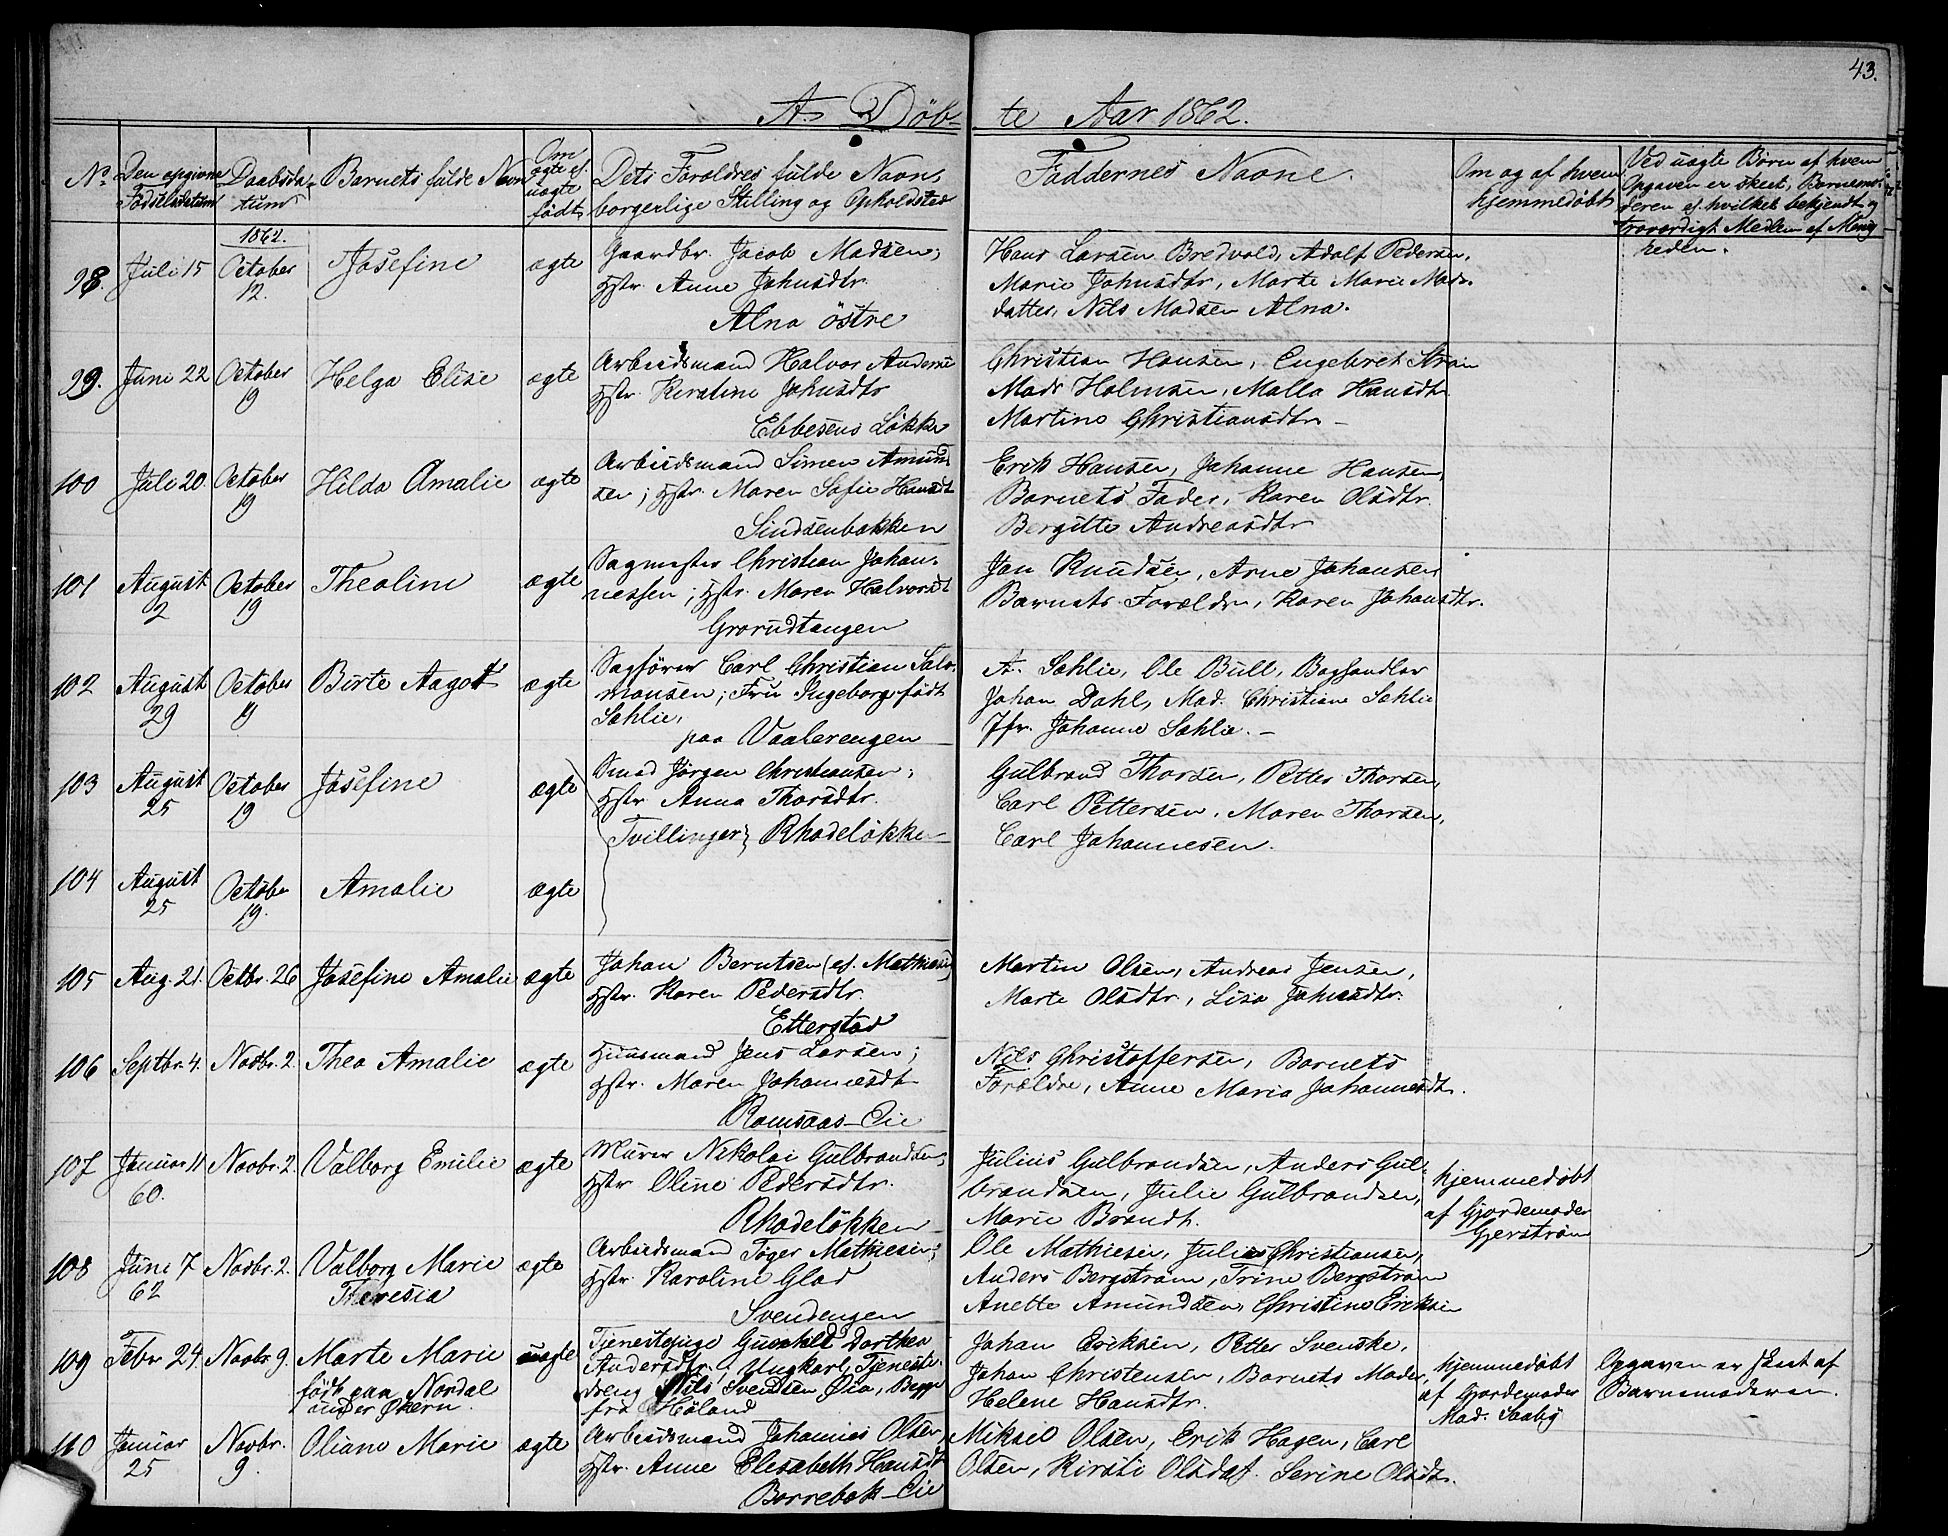 43.
A. Döb- te Aar 1862.
No. Den opgivne Fødselsdatum
Daabsdatum
Barnets fulde Navn
Om ægte el. uægte født
Dets Forældres fulde Navn,
borgerlige Stilling og Opholdsted
Faddernes Navne.
Om og af hvem
hjemmedøbt
Ved uægte Børn af hvem
Opgaven er skeet, Barnemo-
deren el. hvilket bekjendt og
troværdigt Medlem af Menig-
heden.
1862.
98. Juli 15 October 12. Josefine ægte
Gaardbr. Jacob Madsen;
Hstr. Anne Johnsdtr.
Alna östre
Hans Larsen Bredvold, Adolf Pedersen,
Marie Johnsdtr, Marte Marie Mads-
datter, Nils Madsen Alna.
99. Juni 22 October 19 Helga Elise ægte
Arbeidsmand Halvor Anderse
Hstr. Kirstine Johnsdtr
Ebbesens Løkke
Christian Hansen, Engebret Strøm
Mads Holmsen, Malla Hansdtr
Martine Christiansdtr –
100 Juli 20. October 19 Hilda Amalie ægte
Arbeidsmand Simen Amund-
sen; Hstr. Maren Sofie Hansdt
Sindsenbakken
Erik Hansen, Johanne Hansen,
Barnets Fader, Karen Olsdtr.
Bergitte Andreasdtr
101 August 2 October 19 Theoline ægte
Sagmester Christian Johan-
nessen; Hstr. Maren Halvorsdt
Grorudtangen
Jon Knudsen, Arne Johansen
Barnets Forældre, Karen Johansdtr.
102 August 29 October 19 Birte Aagot ægte
Sagfører Carl Christian Salo-
monsen; Fru Ingeborg født
Sehlie,
paa Vaalerengen
A. Sehlie, Ole Bull, Boghandler
Johan Dahl, Mad. Christiane Sehlie
Jfr. Johanne Sehlie. –
103 August 25 October 19 Josefine ægte
Smed Jörgen Christiansen;
Hstr. Anna Thorsdtr.
Tvillinger Rhodeløkken
Gulbrand Thorsen, Petter Thorsen,
Carl Pettersen, Maren Thorsen,
Carl Johannesen.
104 August 25 October 19. Amalie ægte
105 Aug. 21. Octbr. 26 Josefine Amalie ægte
Johan Berntsen (el. Mathiesen)
Hstr. Karen Pedersdtr.
Etterstad
Martin Olsen, Andreas Jensen,
Marte Olsdtr., Lisa Johnsdtr.
106 Septbr. 4. Novbr. 2. Thea Amalie ægte
Huusmand Jens Larsen;
Hstr. Maren Johannesdt
Romsaas-Eie
Nils Christoffersen, Barnets
Forældre, Anne Maria Johannesdt.
107 Januar 11 60. Novbr. 2. Valborg Emilie ægte
Murer Nikolai Gulbrandsen;
Hstr Oline Pedersdtr.
Rhodeløkken
Julius Gulbrandsen, Anders Gul-
brandsen, Julie Gulbrandsen,
Marie Brandt.
hjemmedøbt
af Gjordemoder
Gjerstrøm
108 Juni 7 62 Novbr. 2. Valborg Marie Theresia ægte
Arbeidsmand Töger Mathiesen;
Hstr. Karoline Glad
Svendengen
Ole Mathiesen, Julius Christiansen,
Anders Bergstrøm, Trine Bergstrøm
Anette Amundsen, Christine Eriksen
109 Febr 24. Novbr. 9. Marte Marie født paa Nordal under Økern. uægte
Tjenestepige Gunhild Dorthea
Andersdtr, Ungkarl, Tjeneste-
dreng Nils Svendsen Øia, Begge
fra Höland
Johan Eriksen, Petter Svenske,
Johan Christensen, Barnets Moder,
Helene Hansdtr.
hjemmedøbt
af Gjordemoder
Mad. Saaby
Opgaven er skeet af
Barnemoderen.
110 Januar 25 Novbr. 9. Oliane Marie ægte
Arbeidsmand Johannes Olsen
Hstr. Anne Elisabeth Hansdt
Borrebæk-Eie
Mikael Olsen, Erik Hagen, Carl
Olsen, Kirsti Olsdat. Serine Olsdtr.